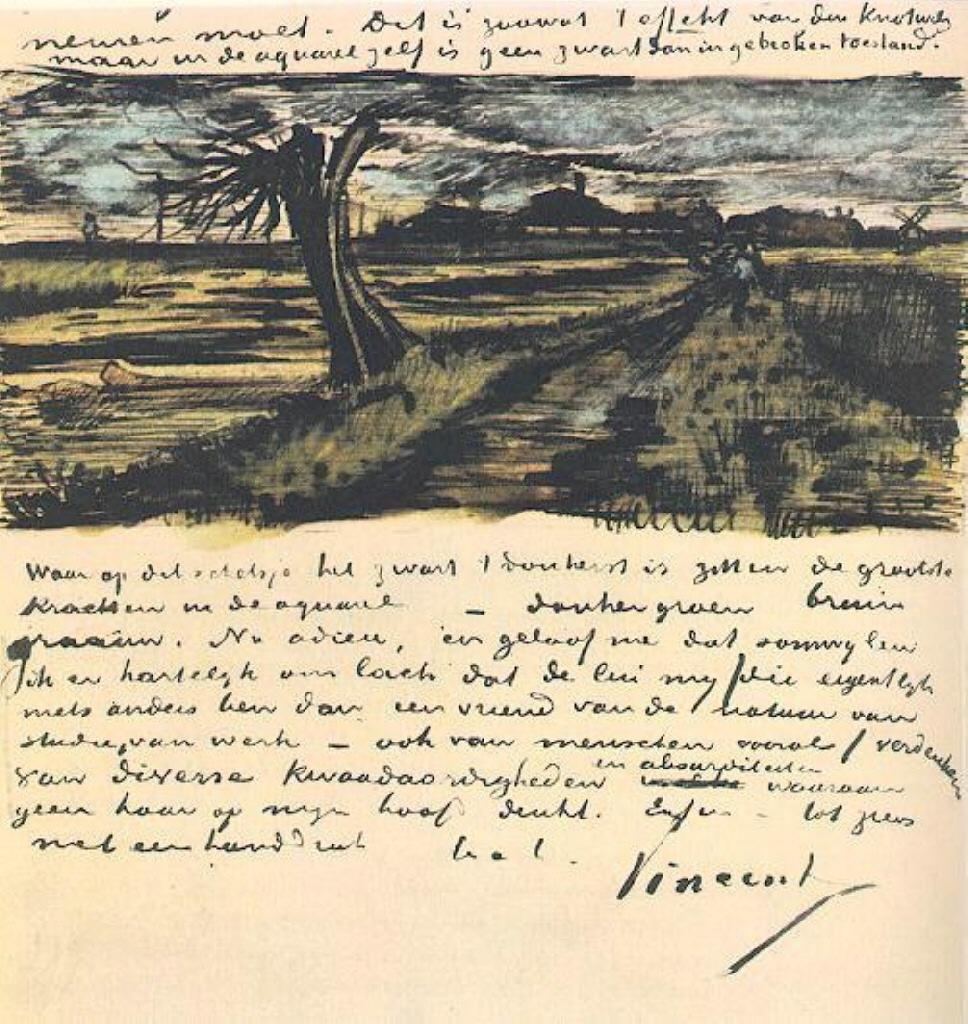 nemen moet. Dit is zoowat 't effekt van den Knotwilg
maar in de aquarel zelf is geen zwart dan in gebroken toestand.
Waar op dit schetsje het zwart 't donkerst is zitten de grootste
krachten in de aquarel – donkergroen bruin
graauw. Nu adieu, en geloof me dat somwylen
ik er hartelyk om lach dat de lui my /die eigentlyk
niets anders ben dan een vriend van de natuur van
studie, van werk – ook van menschen vooral / verdenken
van diverse kwaadaardigheden en absurditeiten waaraan
geen haar op myn hoofd denkt. Enfin – tot ziens
met een handdruk t. à t.
Vincent